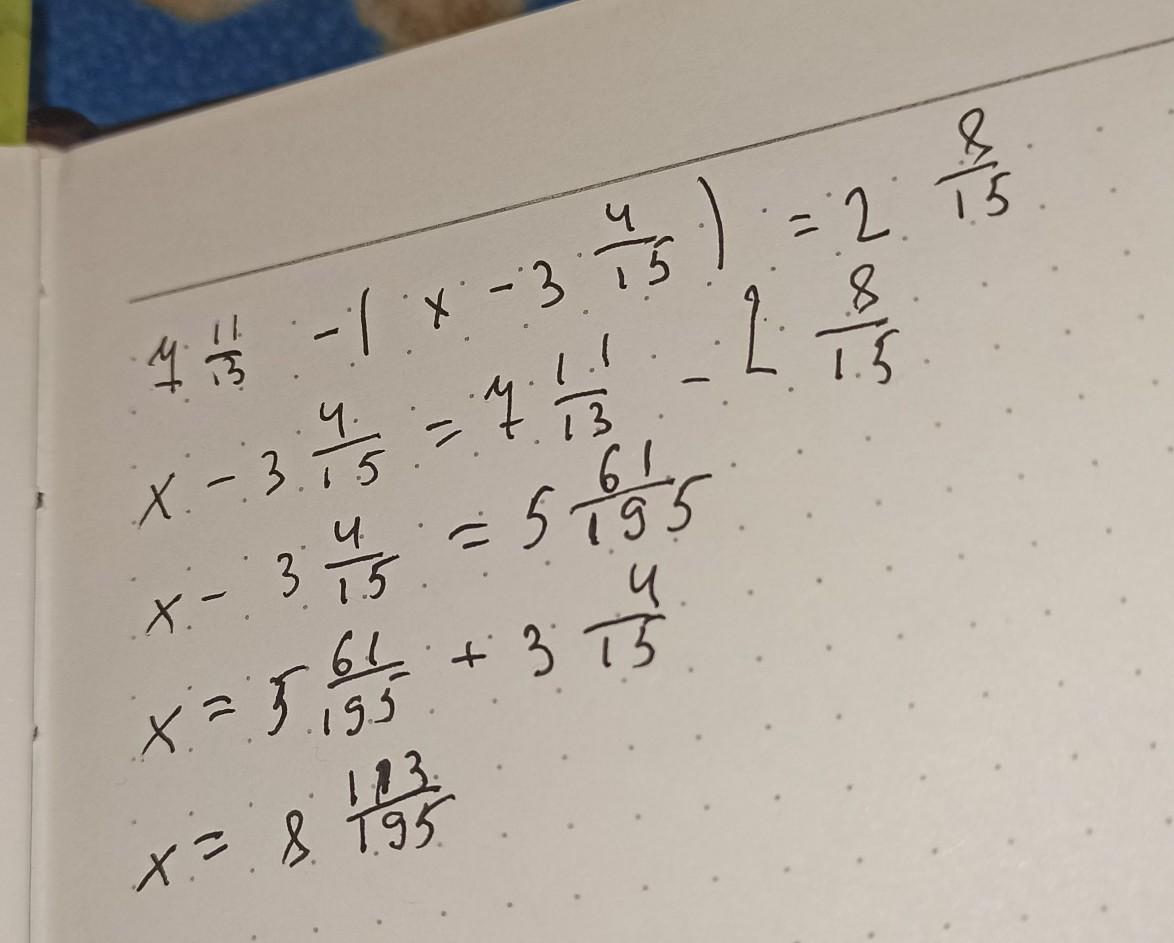 7 11/13 - ( x - 3 4/15 ) = 2 8/15
x - 3 4/15 = 7 11/13 - 2 8/15
x - 3 4/15 = 5 61/195
x = 5 61/195 + 3 4/15
x = 8 113/195